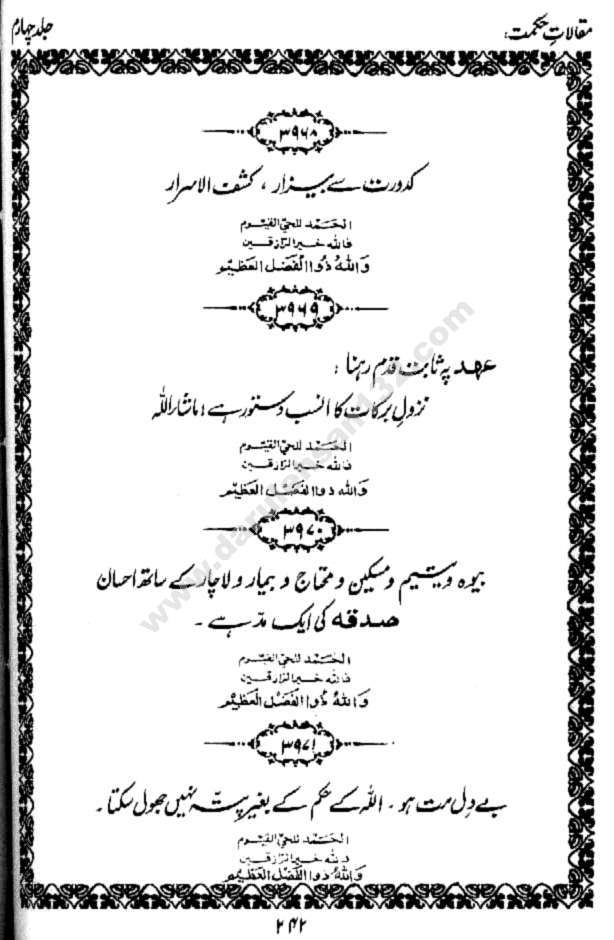 مقالاتِ حکمت:
جلد چہارم
۳۹۶۸
کدورت سے بیزار ، کشف الاسرار
الحمد للحی القیوم
فاللہ خیر الرازقین
واللہ ذو الفضل العظیم
۳۹۶۹
عہد پہ ثابت قدم رہنا :
نزولِ برکات کا انسب دستور ہے ! ماشاءاللہ
الحمد للحی القیوم
فاللہ خیر الرازقین
واللہ ذو الفضل العظیم
۳۹۷۰
بیوہ و یتیم و مسکین و محتاج و بیمار و لاچار کے ساتھ احسان
صدقہ کی ایک مد ہے ۔
الحمد للحی القیوم
فاللہ خیر الرازقین
واللہ ذو الفضل العظیم
۳۹۷۱
بے دِل مت ہو ۔ اللہ کے حکم کے بغیر پتّہ نہیں جھول سکتا ۔
الحمد للحی القیوم
فاللہ خیر الرازقین
واللہ ذو الفضل العظیم
۲۴۲